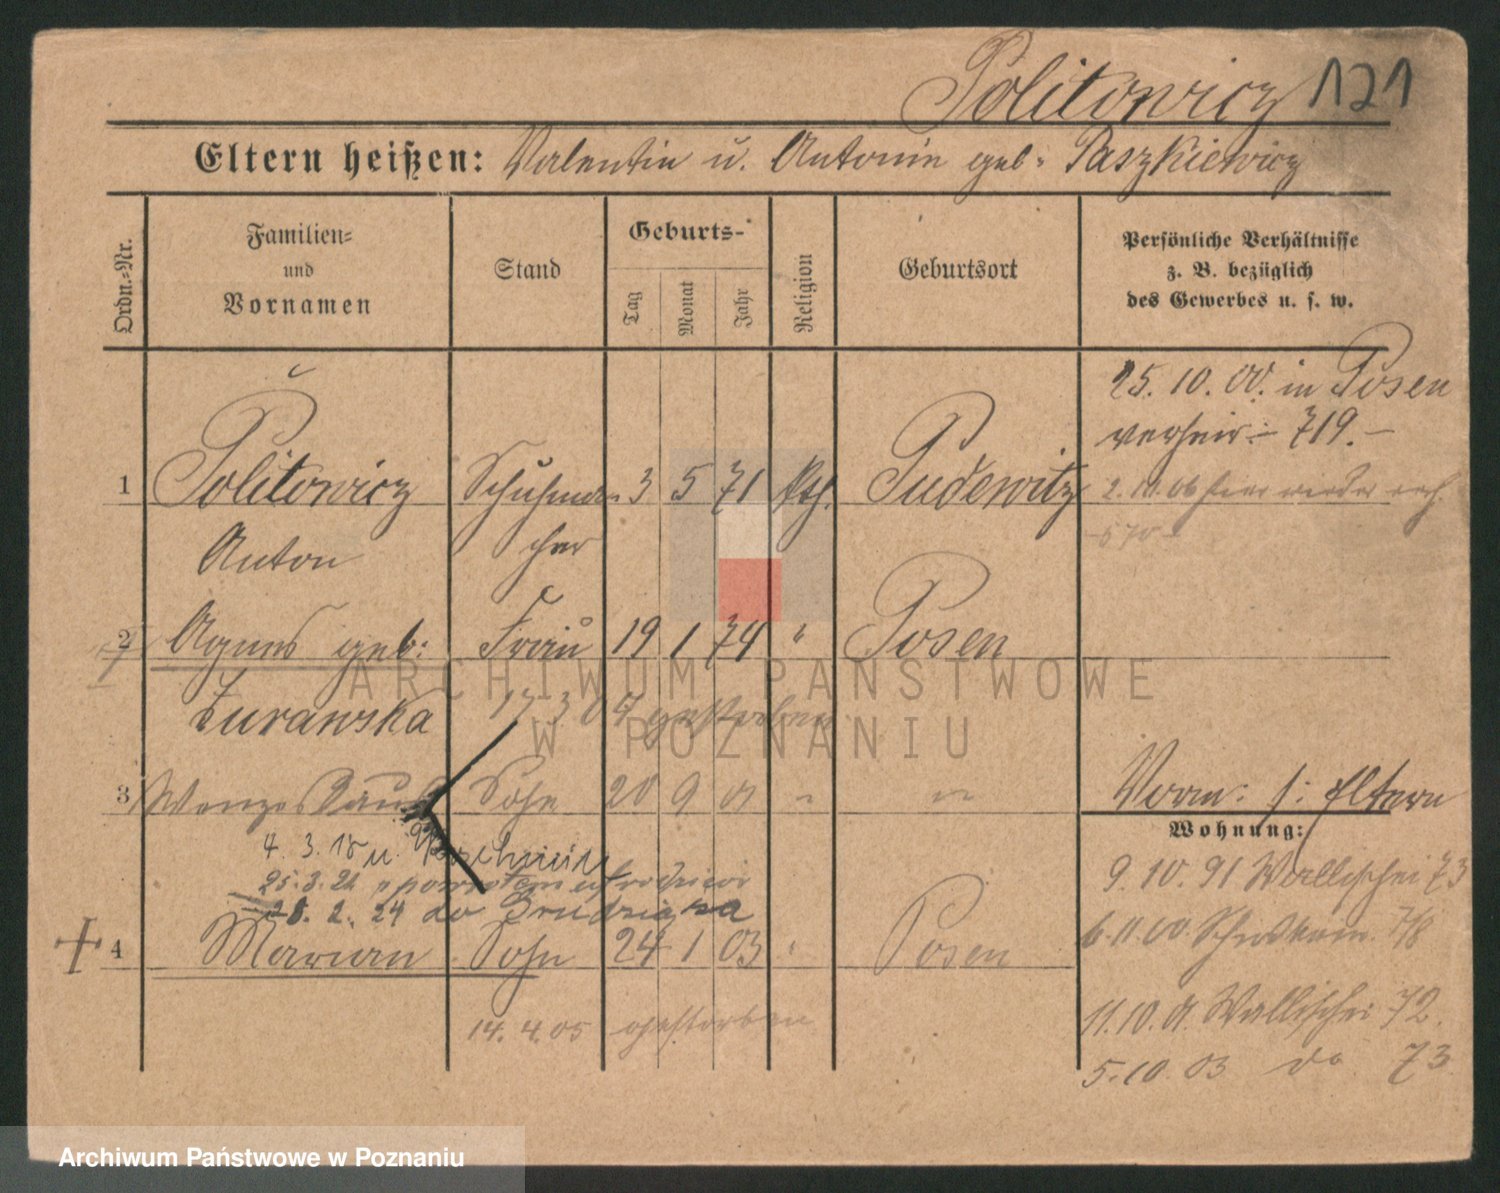 Politowicz 121
Eltern heißen: Valentin u. Antonie geb. Paszkiewicz
Ordn.-Nr.
Familien-
und
Vornamen
Stand
Geburts-
Tag
Monat
Jahr
Religion
Geburtsort
Persönliche Verhältnisse
z. B. bezüglich
des Gewerbes u. s. w.
25. 10. 00. in Posen
verheir. 719.
1 Politowicz Schuhma- 3 5 71 kth. Pudewitz
2. 10. 06 hier wieder
Anton cher
570
2 Agnes geb: Frau 19 1 74 " Posen
Zurawska 17 3 07 gestorben
3 Sohn 20 9 01 " "
Vorm: s: Eltern
Wohnung:
4. 3. 18 u.
9. 10. 91 Wallischei 73
25. 3. 22
28. 2. 24 do
6. 11. 00. 7/8
4 Marian Sohn 24 1 03 " Posen
11. 10. 01 Wallischei 72.
14. 4. 05 gestorben
5. 10. 03 do 73
ARCHIWUM PAŃSTWOWE
W POZNANIU
Archiwum Państwowe w Poznaniu